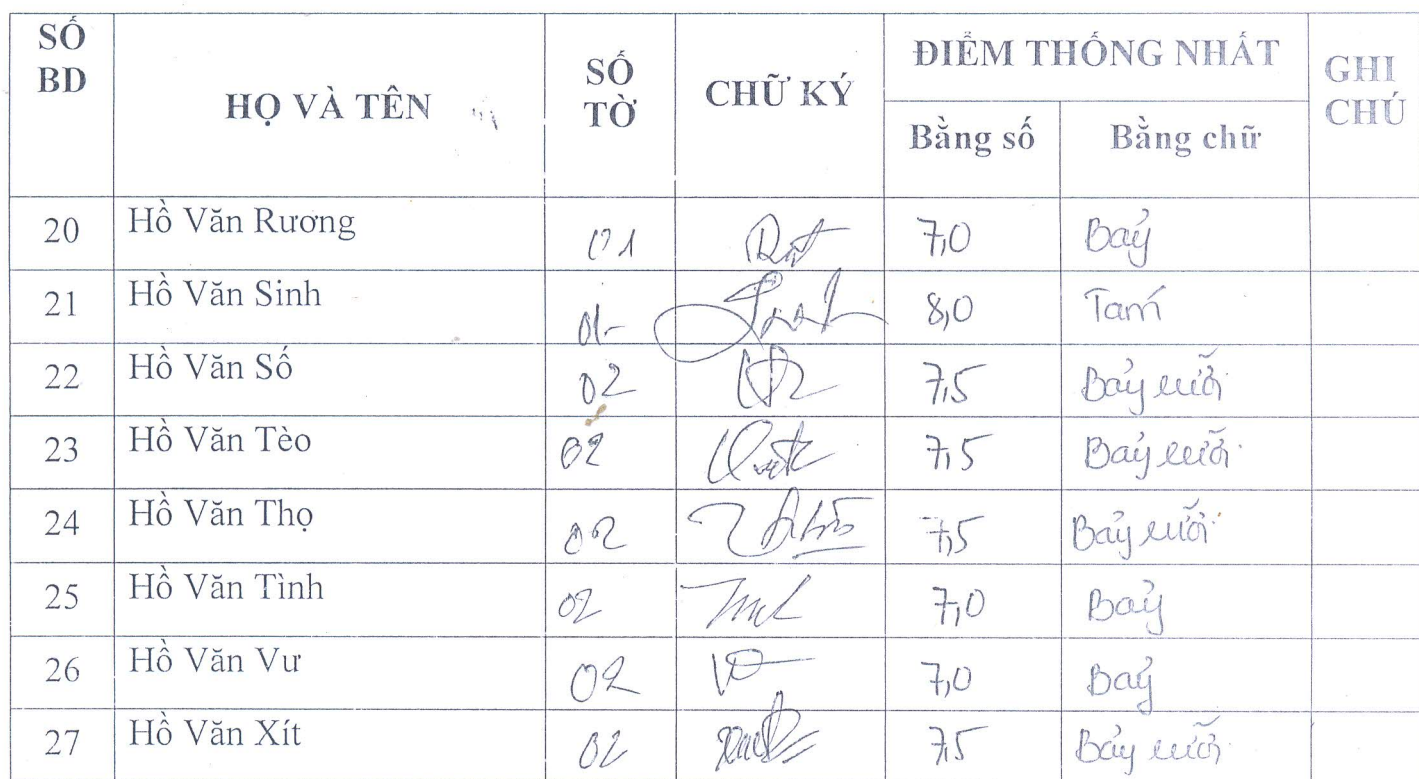 SỐ BD HỌ VÀ TÊN SỐ TỜ CHỮ KÝ ĐIỂM THỐNG NHẤT GHI CHÚ
Bằng số Bằng chữ
20 Hồ Văn Rương 01 7,0 Bảy
21 Hồ Văn Sinh 01 8,0 Tám
22 Hồ Văn Số 02 7,5 Bảy rưỡi
23 Hồ Văn Tèo 02 7,5 Bảy rưỡi
24 Hồ Văn Thọ 02 7,5 Bảy rưỡi
25 Hồ Văn Tình 02 7,0 Bảy
26 Hồ Văn Vư 02 7,0 Bảy
27 Hồ Văn Xít 02 7,5 Bảy rưỡi